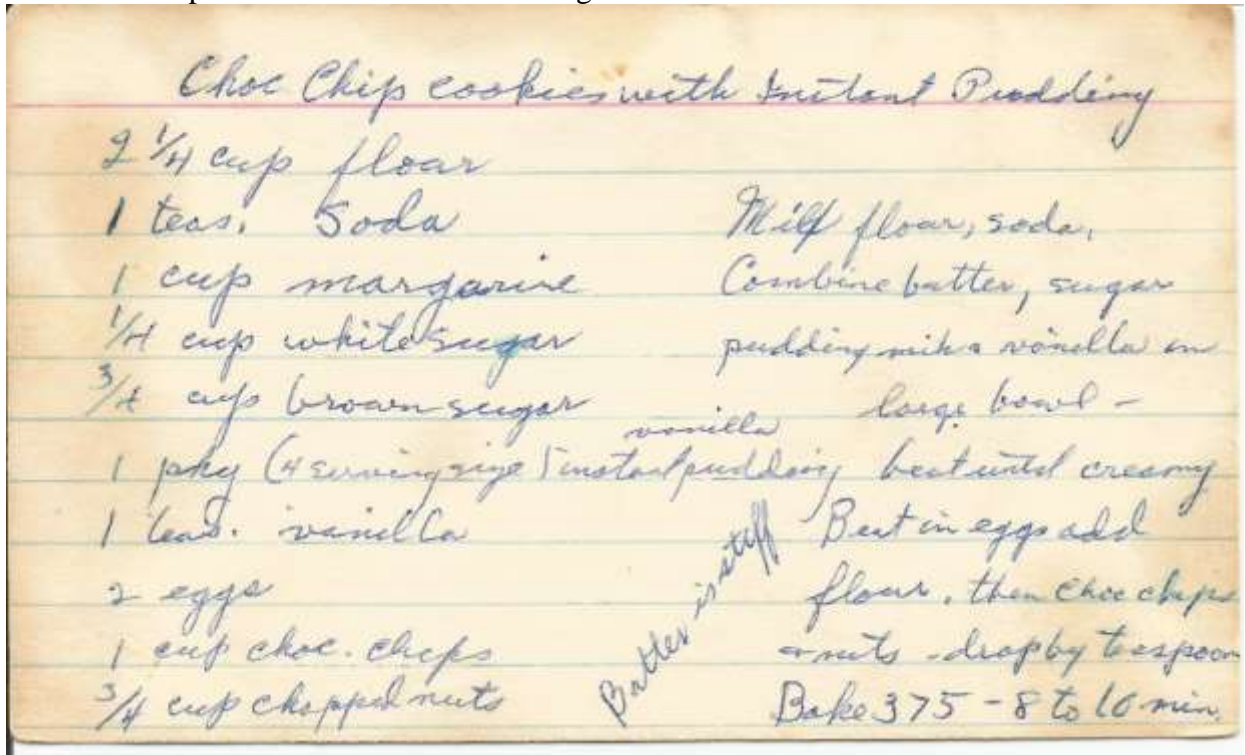 Choc Chip cookies with Instant Pudding
2 1/4 cup flour
1 teas. Soda
1 cup margarine
1/4 cup white sugar
3/4 cup brown sugar
1 pkg (4 serving size) instant vanilla pudding
1 teas. vanilla
2 eggs
1 cup choc. chips
3/4 cup chopped nuts
Batter is stiff
flour, soda,
Combine butter, sugar
pudding mix & vanilla in
large bowl -
beat until creamy
Beat in eggs add
flour, then choc chips
& nuts - drop by teaspoon
Bake 375 - 8 to 10 min.